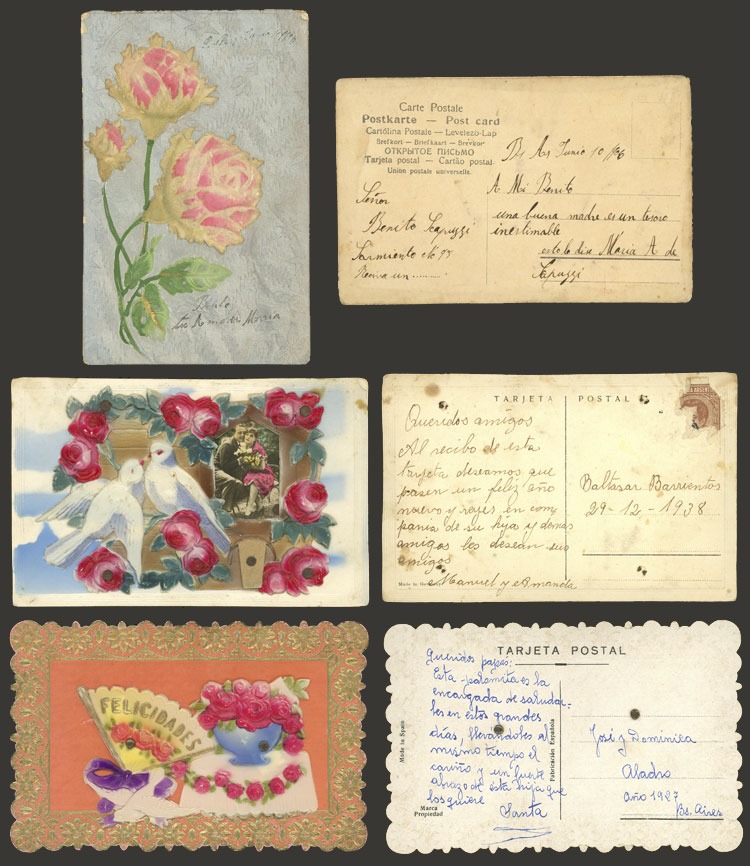 Benito
tu Amada Maria
Carte Postale
Postkarte — Post card
Cartolina Postale — Levelezo-Lap
Brefkort — Briefkaart — Brevkort
ОТКРЫТОЕ ПИСЬМО
Tarjeta postal — Cartão postal.
Union postale universelle.
Bs As Junio 10/06
Señor
Benito Capuzzi
Sarmiento No
A Mi Benito
una buena madre es un tesoro
inestimable
esto lo dia Maria A de
Capuzzi
TARJETA POSTAL
Queridos amigos
Al recibo de esta
tarjeta deseamos que
pasen un feliz año
nuevo y reyes en com
pania de su hija y demas
amigos los desean sus
amigos
Manuel y Amanda
Made in
Baltasar Barrientos
29-12-1938
FELICIDADES
TARJETA POSTAL
Queridos papás:
Esta palomita es la
encargada de saludar-
les en estos grandes
días, llevándoles al
mismo tiempo el
cariño y un fuerte
abrazo de esta hija que
los quiere
Santa
Made in Spain
Fabricación Española
Marca
Propiedad
José y Dominica
Aladro
Año 1927
Bs. Aires